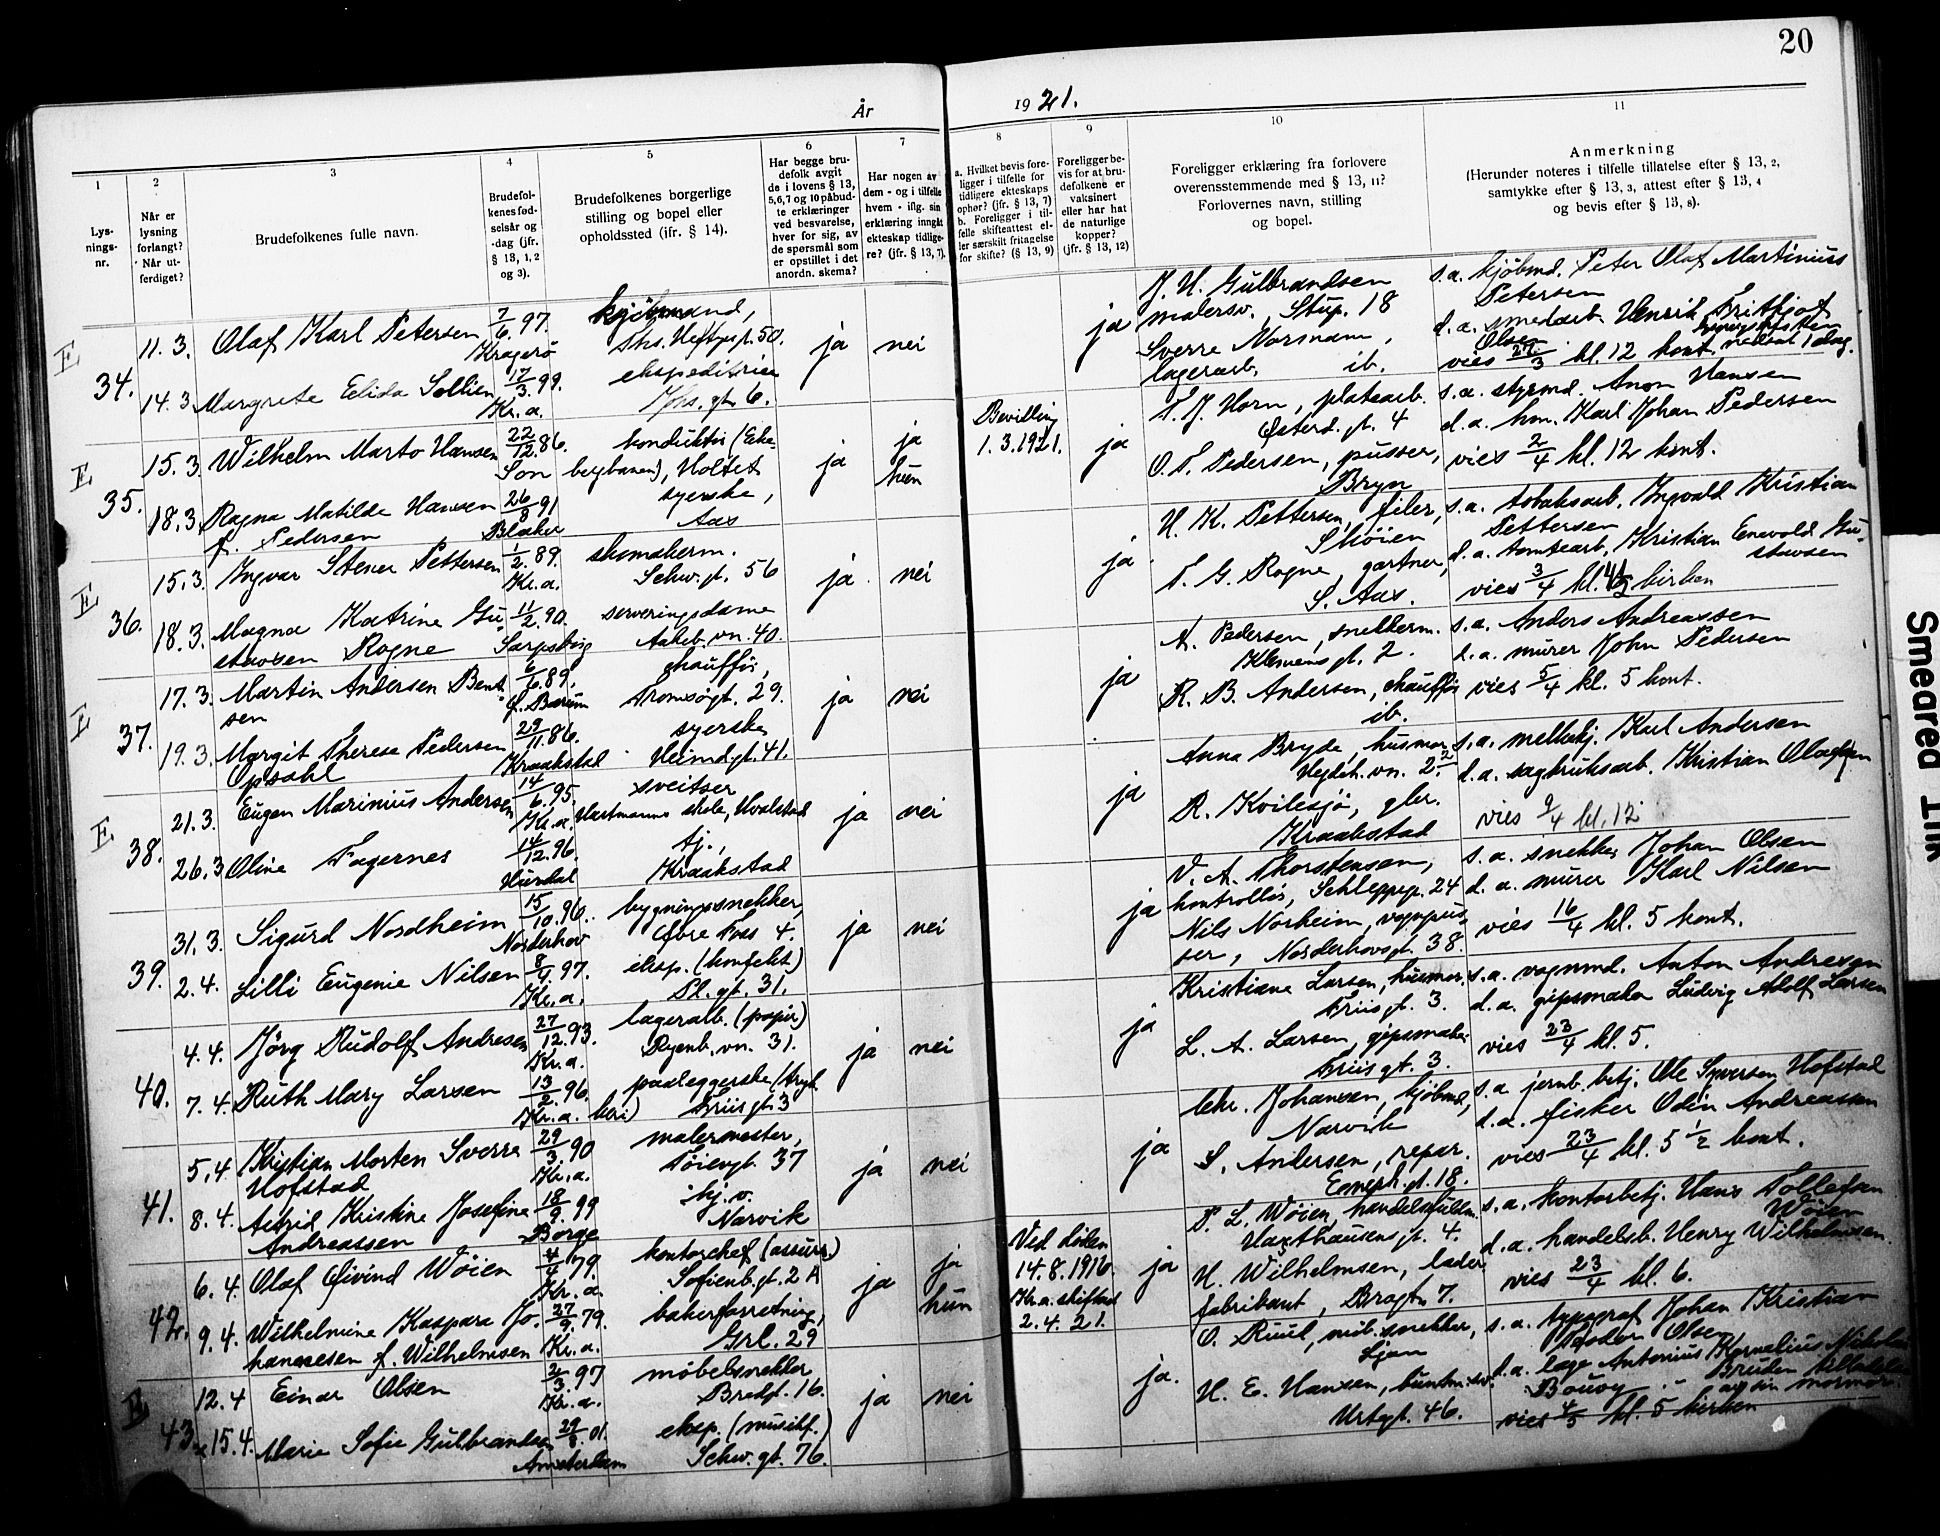 20
År
1921.
1
2
3
4
5
6
7
8
9
10
11
Lys-
nings-
nr.
Når er
lysning
forlangt?
Når ut-
ferdiget?
Brudefolkenes fulle navn.
Brudefol-
kenes fød-
selsår og
-dag (jfr.
§ 13, 1, 2
og 3).
Brudefolkenes borgerlige
stilling og bopel eller
opholdssted (ifr. § 14).
Har begge bru-
defolk avgit
de i lovens § 13,
5,6,7 og 10 påbud-
te erklæringer
ved besvarelse,
hver for sig, av
de spørsmål som
er opstillet i det
anordn. skema?
Har nogen av
dem - og i tilfelle
hvem - iflg. sin
erklæring inngåt
ekteskap tidlige-
re? (jfr. § 13, 7).
a. Hvilket bevis fore-
ligger i tilfelle for
tidligere ekteskaps
ophør? (jfr. § 13, 7)
b. Foreligger i til-
felle skifteattest el-
ler særskilt fritagelse
for skifte? (§ 13, 9)
Foreligger be-
vis for at bru-
defolkene er
vaksinert
eller har hat
de naturlige
kopper?
(jfr. § 13, 12)
Foreligger erklæring fra forlovere
overensstemmende med § 13, 11?
Forlovernes navn, stilling
og bopel.
Anmerkning
(Herunder noteres i tilfelle tillatelse efter § 13, 2,
samtykke efter § 13, 3, attest efter § 13, 4
og bevis efter § 13, 8).
E
34.
11. 3.
Olaf Karl Petersen
7/6 97.
Kragerø
kjøbmand,
Ths. Heftyesgt. 50.
14. 3.
Margrete Elida Sollien
17/3 99.
Kr.a.
ekspeditrice
gt. 6.
ja
nei
ja
J. H. Gulbrandsen
malersv., Stup. 18
Sverre Norsnam,
lagerarb. ib.
s.a. kjøbmd. Peter Olaf Martinius
Petersen
d.a. smedarb. Henrik Frithjof
Olsen
vies 27/3 kl. 12 kont.
E
35.
15. 3.
Wilhelm Marto Hansen
22/12 86.
Son
konduktør (Eke-
bergbanen), Holtet
18. 3.
Ragna Matilde Hansen
f. Pedersen
26/8 91
Blaker
syerske,
Aas
ja
ja
hun
Bevilling
1.3.1921.
ja
T. J. Horn, platearb.
Østerd. gt. 4
O. T. Pedersen, pusser,
Bryn
s.a. styrmd. Anon Hansen
d.a. hm. Karl Johan Pedersen
vies 2/4 kl. 12 kont.
E
36.
15. 3.
Ingvar Stener Pettersen
1/2 89.
Kr.a.
skomakerm.
Schw. gt. 56
18. 3.
Magna Katrine Gu-
stavsen Rogne
11/2 90.
Sarpsborg
serveringsdame
Akeb. vn. 40.
ja
nei
ja
H. K. Pettersen, filer,
Skøien
T. G. Rogne, gartner,
S. Aas.
s.a. tobaksarb. Ingvald Kristian
Pettersen
d.a. tomtearb. Kristian Enevold Gu-
stavsen
vies 3/4 kl. kirken
E
37.
17. 3.
Martin Andersen Bent-
sen
6/6 89.
f. Bærum
chauffør,
Tromsøgt. 29.
19. 3.
Margit Therese Pedersen
Opsahl
29/11 86.
Kraakstad
syerske
Heimdgt. 41.
ja
nei
ja
A. Pedersen, snekkerm.
Klemens gt. 2.
R. B. Andersen, chauffør
ib.
s.a. Anders Andreassen
d.a. murer John Pedersen
vies 5/4 kl. 5 kont.
E
38.
21. 3.
Eugen Marinius Andersen
14/6 95.
Kr.a.
sveitser
Hartmanns skole, Hvalstad
26. 3
Oline Fagernes
14/12 96.
Hurdal
tj.,
Kraakstad
ja
nei
ja
Anna Bryde, husmor
Hegdeh. vn. 22.
R. Kvilesjø, gbr.
Kraakstad
s.a. melkekj. Karl Andersen
d.a. sagbruksarb. Kristian Olagsen
vies 9/4 kl. 12
39.
31. 3.
Sigurd Nordheim
15/10 96.
Norderhov
bygningssnekker,
Øvre Foss 4.
2. 4.
Lilli Eugenie Nilsen
8/9 97.
Kr.a.
eksp. (konfekt.)
Pl. gt. 31.
ja
nei
ja
V. A. Thorstensen,
kontrollør, Schleppegr. 24
Nils Norheim, vognpus-
ser, Norderhovsgt. 38.
s.a. snekker Johan Olsen
d.a. murer Karl Nilsen
vies 16/4 kl. 5 kont.
40.
4. 4.
Jörg Rudolf Andresen
27/12 93.
Kr.a.
lagerarb. (papir)
Ryenb. vn. 31.
7. 4.
Ruth Mary Larsen
13/2 96.
Kr.a.
paaleggerske (tryk-
keri) Friis gt. 3
ja
nei
ja
Kristiane Larsen, husmor,
Friis gt. 3.
L. A. Larsen, gipsmaker
Friis gt. 3.
s.a. vognmd. Anton Andresen
d.a. gipsmaker Ludvig Adolf Larsen
vies 23/4 kl. 5.
41.
5. 4
Kristian Morten Sverre
Hofstad
29/3 90
Kr.a.
malermester,
Tøiengt. 37
8. 4.
Astrid Kristine Josefine
Andreassen
18/9 99
Borge
hj. v.
Narvik
ja
nei
ja
Chr. Johansen, kjøbmd,
Narvik
S. Andersen, repar.
Enegh. gt. 18.
s.a. jernb. betj. Ole Syversen Hofstad
d.a. fisker Odin Andreassen
vies 23/4 kl. 5 1/2 kont.
42.
6. 4.
Olaf Øivind Wøien
4/4 79.
Kr.a.
kontorchef (assur.)
Sofienb. gt. 2 A
9. 4.
Wilhelmine Kaspara Jo-
hannesen f. Wilhelmsen
27/9 79.
Kr.a.
bakerforretning,
Grl. 29
ja
ja
hun
Ved døden
14.8.1916.
Kr.a. skifted
2.4.21.
ja
P. L. Wøien, handelsfullm.
Haxthausens gt. 4.
H. Wilhelmsen, læder-
fabrikant, Bragt. 7.
s.a. kontorbetj. Hans Tollefsen
Wøien
d.a. handelsb. Henry Wilhelmsen.
vies 23/4 kl. 6.
E
43.
12. 4
Einar Olsen
2/3 97
Kr.a.
møbelsnekker
Bredgt. 16.
15. 4.
Marie Sofie Gulbrandsen
29/8 01.
Amsterdam
eksp. (musikf.)
Schw. gt. 76.
ja
nei
ja.
O. Ruul, møb. snekker,
Ljan
H. E. Hansen, buntm. sv.
Urtegt. 46.
s.a. typograf Johan Kristian
Olsen
d.a. læge Antonius Kornelius
Bouvy
Bruden tillatelse
av sin mormor.
vies 4/5 kl. 5 kirken
Smeared Ink